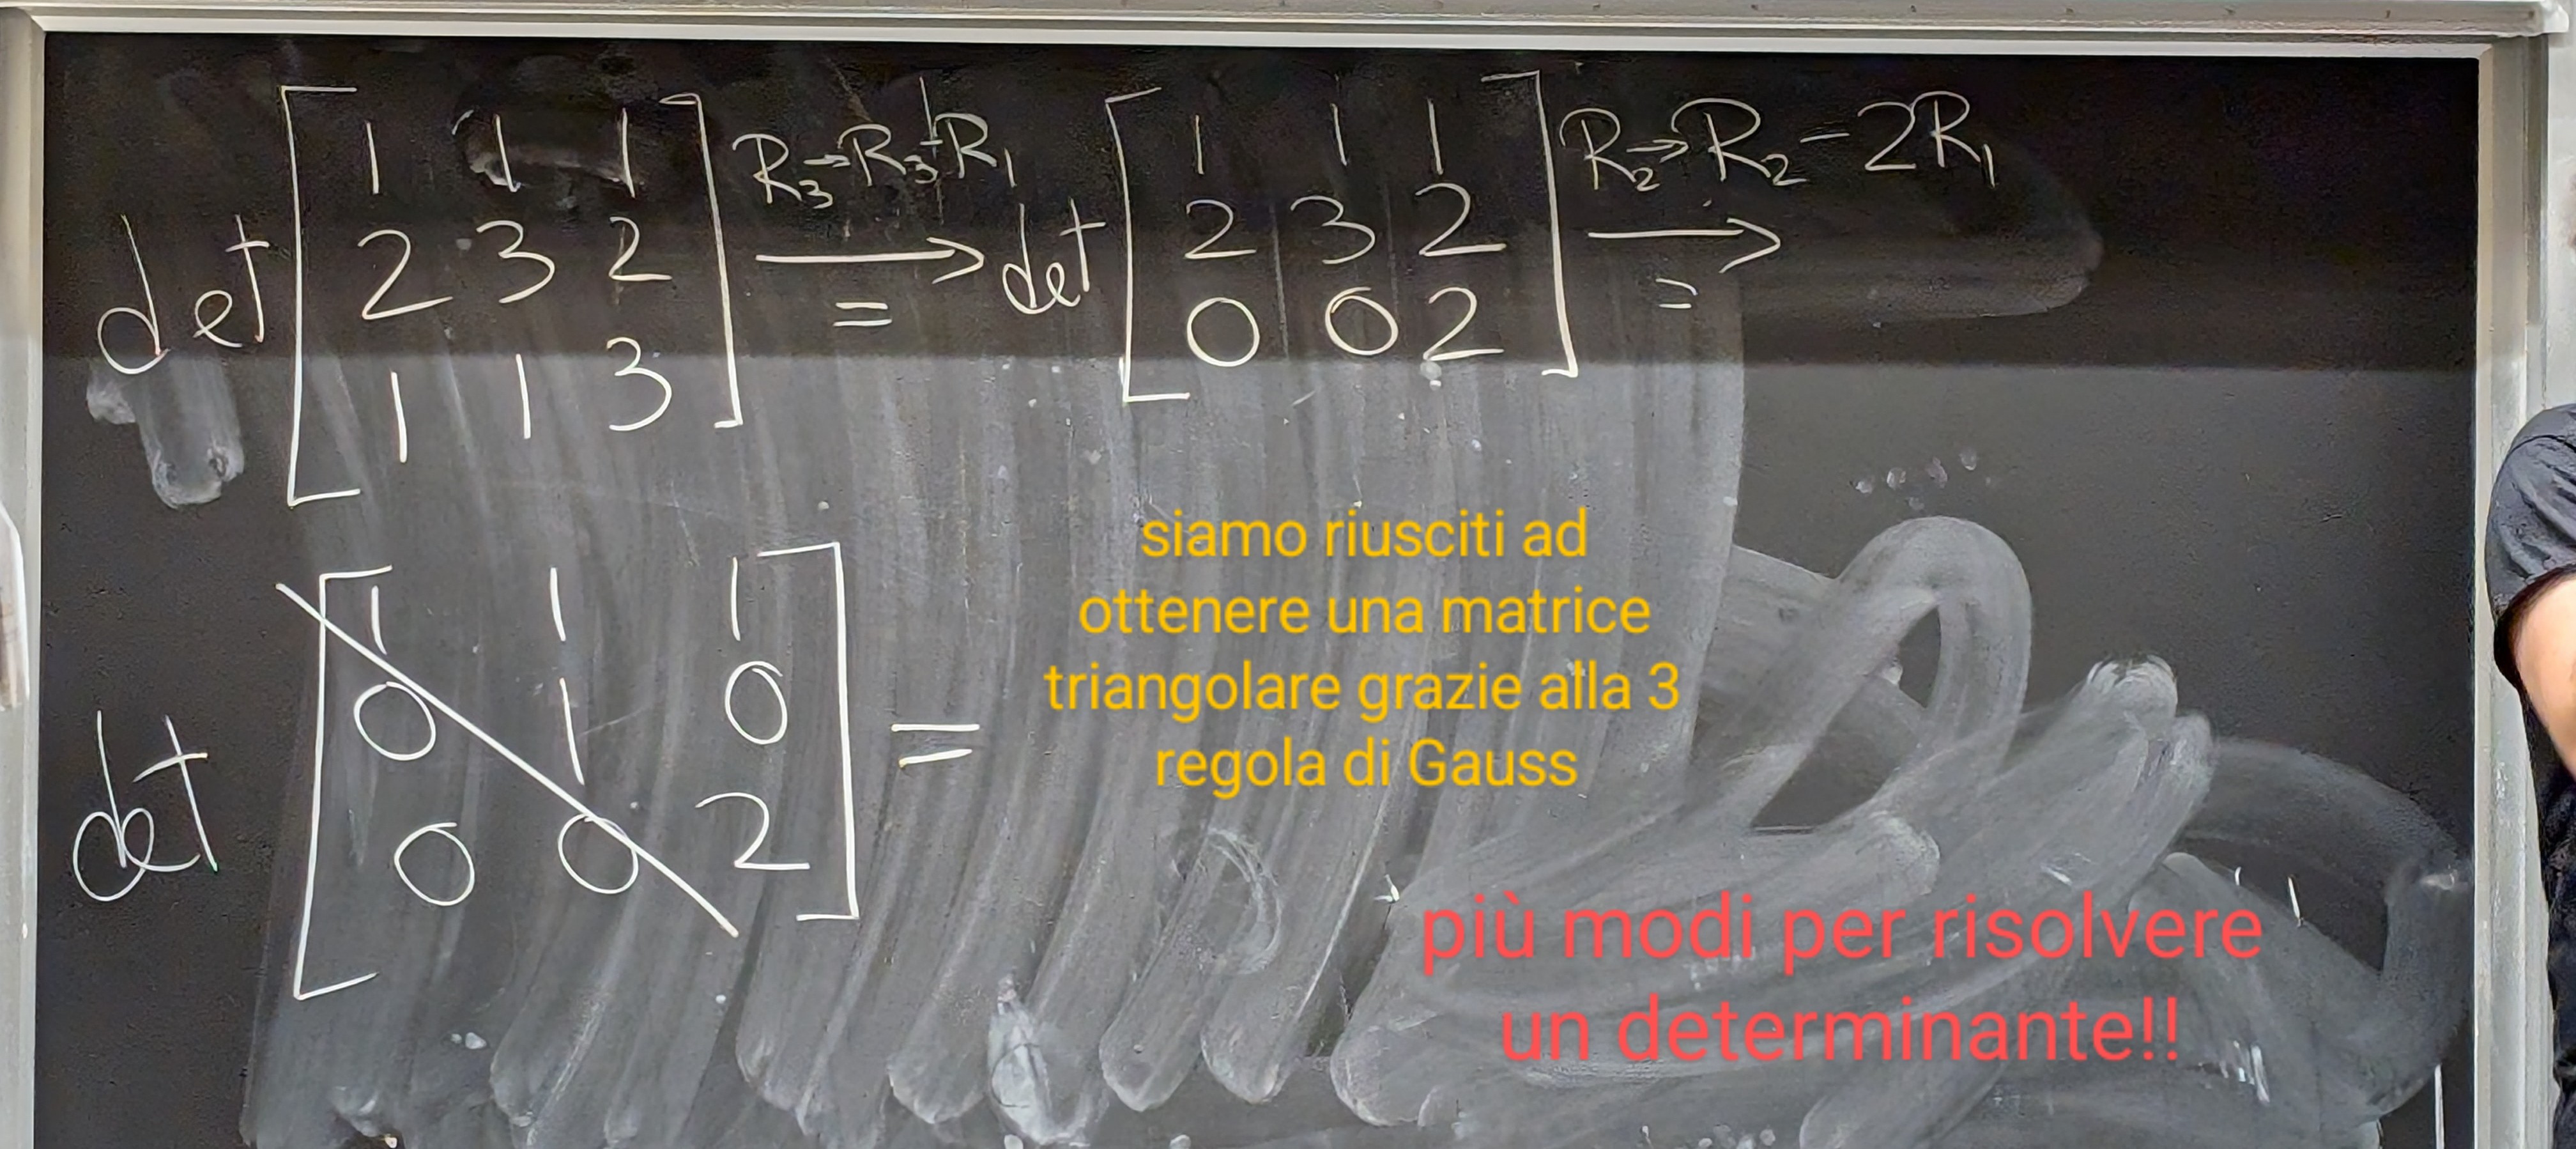 det [ 1 1 1 ] R₃→R₃-R₁ det [ 1 1 1 ] R₂→R₂-2R₁
[ 2 3 2 ] ⟶ [ 2 3 2 ] ⟶
[ 1 1 3 ] = [ 0 0 2 ] =
det [ 1 1 1 ] =
[ 0 1 0 ]
[ 0 0 2 ]
siamo riusciti ad
ottenere una matrice
triangolare grazie alla 3
regola di Gauss
più modi per risolvere
un determinante!!